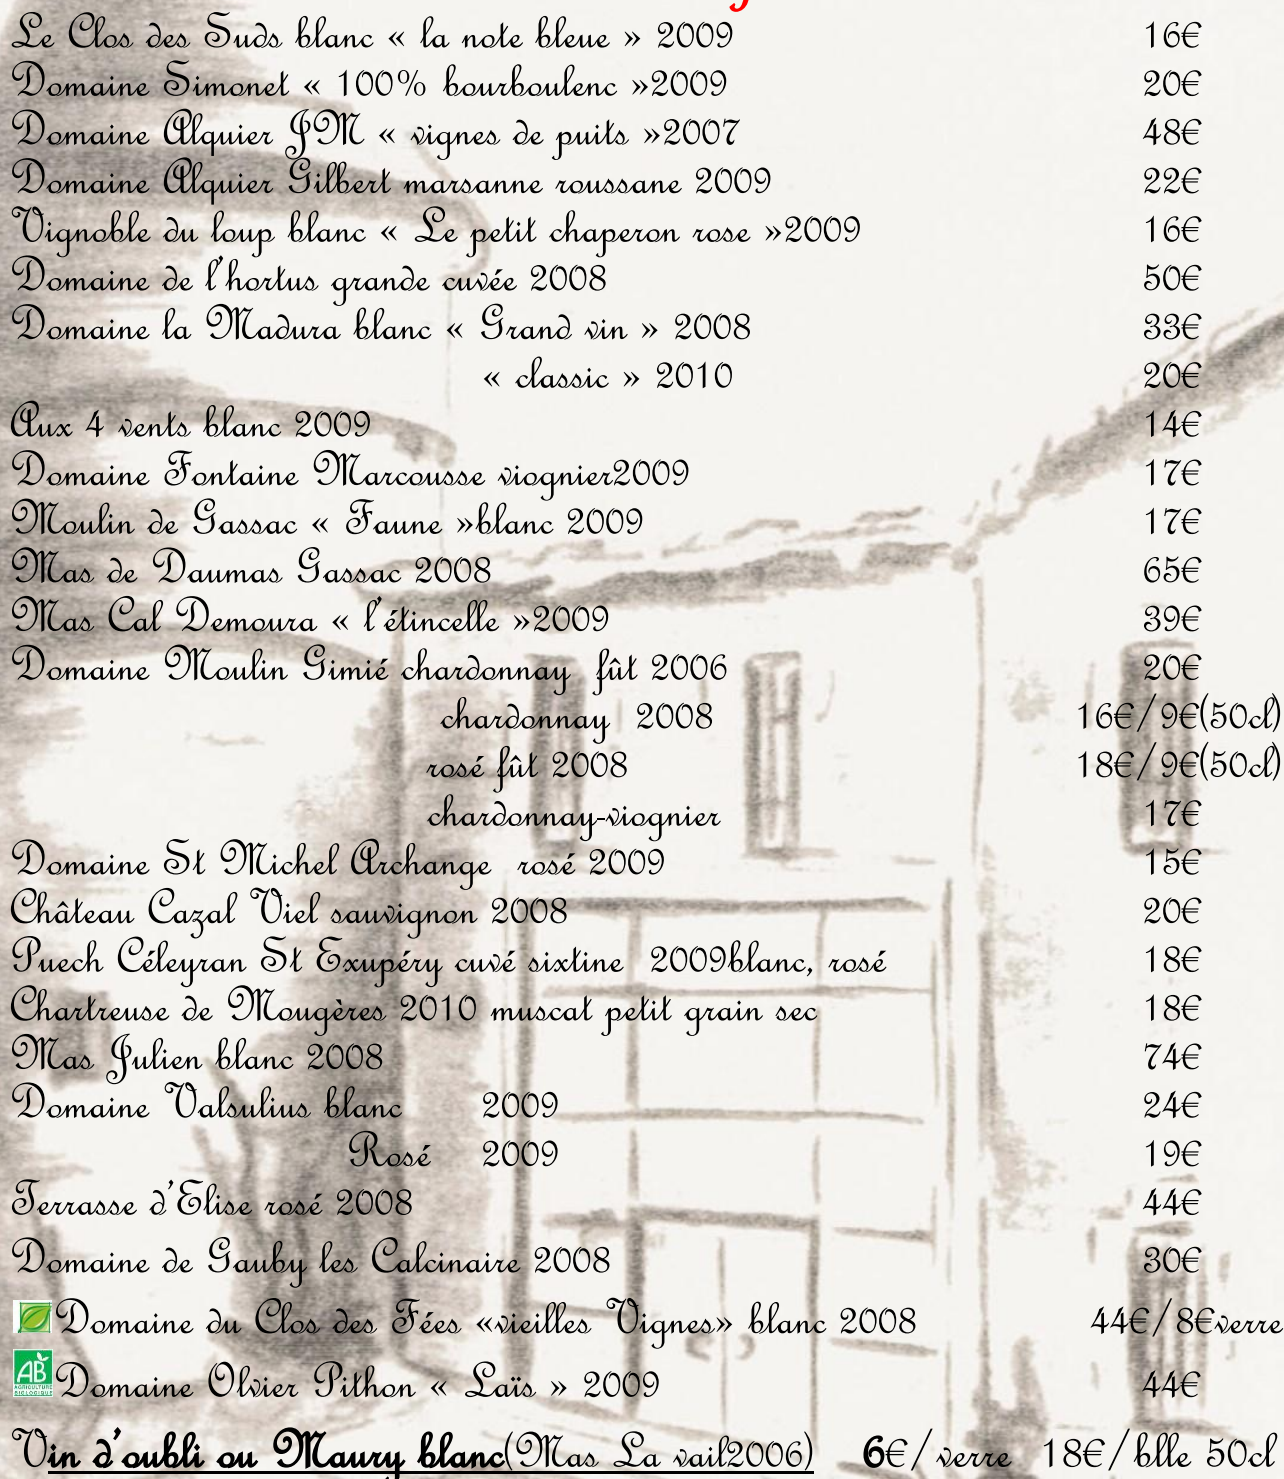 Le Clos des Suds blanc « la note bleue » 2009 16€
Domaine Simonet « 100% bourboulenc »2009 20€
Domaine Alquier JM « vignes de puits »2007 48€
Domaine Alquier Gilbert marsanne roussane 2009 22€
Vignoble du loup blanc « Le petit chaperon rose »2009 16€
Domaine de l'hortus grande cuvée 2008 50€
Domaine la Madura blanc « Grand vin » 2008 33€
« classic » 2010 20€
Aux 4 vents blanc 2009 14€
Domaine Fontaine Marcousse viognier2009 17€
Moulin de Gassac « Faune »blanc 2009 17€
Mas de Daumas Gassac 2008 65€
Mas Cal Demoura « l'étincelle »2009 39€
Domaine Moulin Gimié chardonnay fût 2006 20€
chardonnay 2008 16€/9€(50cl)
rosé fût 2008 18€/9€(50cl)
chardonnay-viognier 17€
Domaine St Michel Archange rosé 2009 15€
Château Cazal Viel sauvignon 2008 20€
Puech Céleyran St Exupéry cuvé sixtine 2009blanc, rosé 18€
Chartreuse de Mougères 2010 muscat petit grain sec 18€
Mas Julien blanc 2008 74€
Domaine Valsulius blanc 2009 24€
Rosé 2009 19€
Terrasse d'Elise rosé 2008 44€
Domaine de Gauby les Calcinaire 2008 30€
Domaine du Clos des Fées «vieilles Vignes» blanc 2008 44€/8€verre
AB AGRICULTURE BIOLOGIQUE Domaine Olvier Pithon « Laïs » 2009 44€
Vin d'oubli ou Maury blanc(Mas La vail2006) 6€/verre 18€/blle 50cl